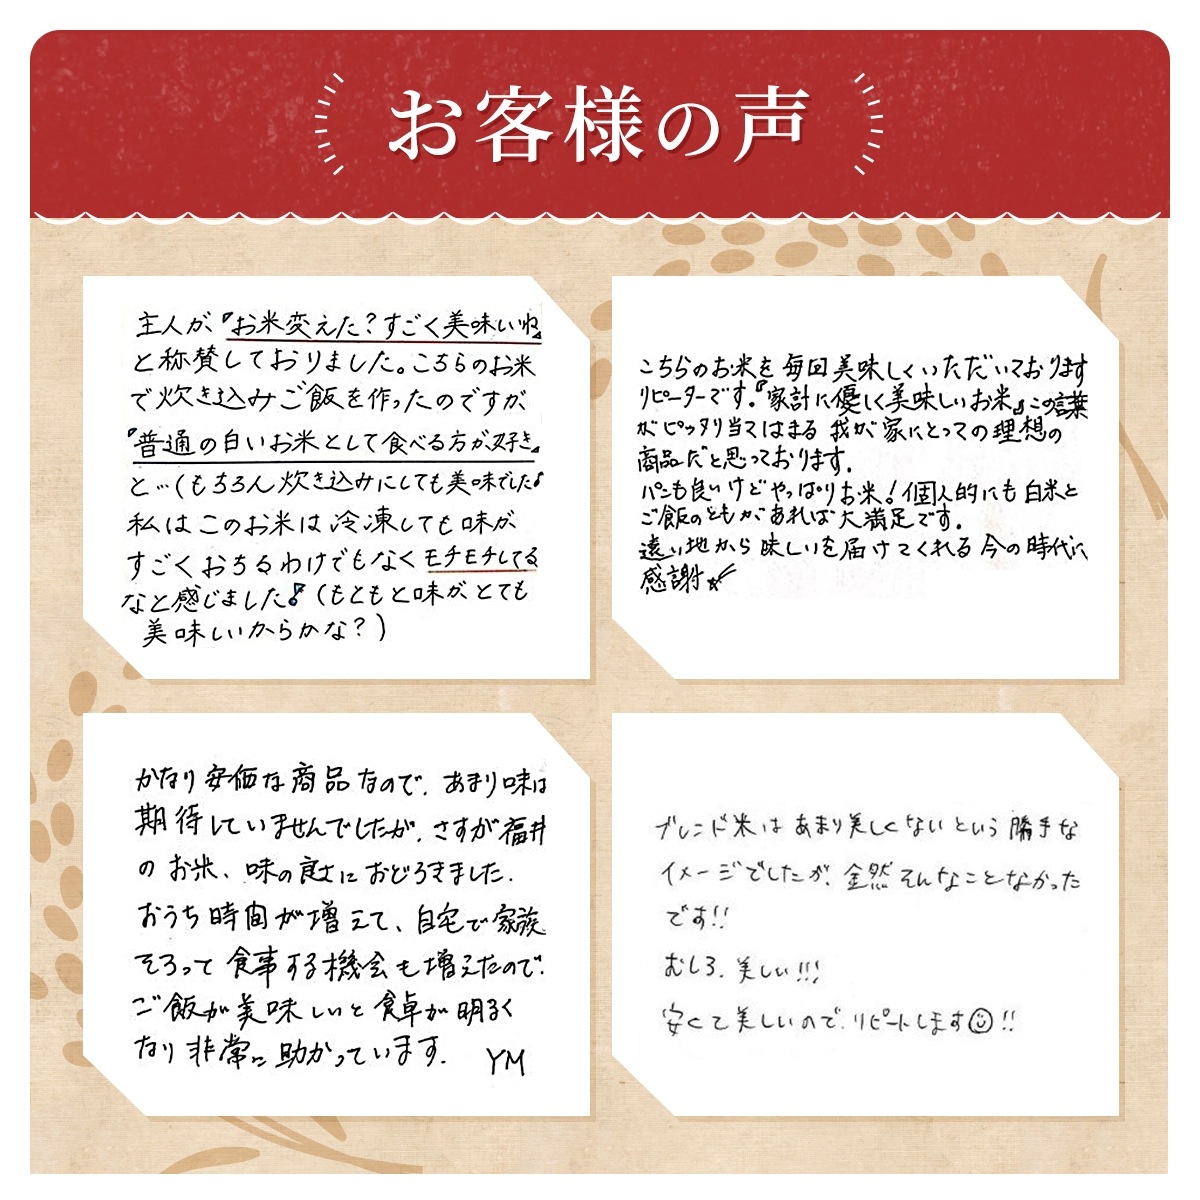 お客様の声
主人が『お米変えた？すごく美味いね』
と称賛しておりました。こちらのお米
で炊き込みご飯を作ったのですが
『普通の白いお米として食べる方が好き』
と…(もちろん炊き込みにしても美味でした♪
私はこのお米は冷凍しても味が
すごくおちるわけでもなくモチモチしてる
なと感じました♪(もともと味がとても
美味しいからかな？)
こちらのお米を毎回美味しくいただいております
リピーターです。『家計に優しく美味しいお米』この言葉
がピッタリ当てはまる我が家にとっての理想の
商品だと思っております。
パンも良いけどやっぱりお米！個人的にも白米と
ご飯のともがあれば大満足です。
遠い地から味しいを届けてくれる今の時代に
感謝☆
かなり安価な商品なので、あまり味は
期待していませんでしたが、さすが福井
のお米、味の良さにおどろきました。
おうち時間が増えて、自宅で家族
そろって食事する機会も増えたので、
ご飯が美味しいと食卓が明るく
なり非常に助かっています。 YM
ブレンド米はあまり美しくないという勝手な
イメージでしたが、全然そんなことなかった
です!!
むしろ、美しい!!!
安くて美しいので、リピートします☺!!